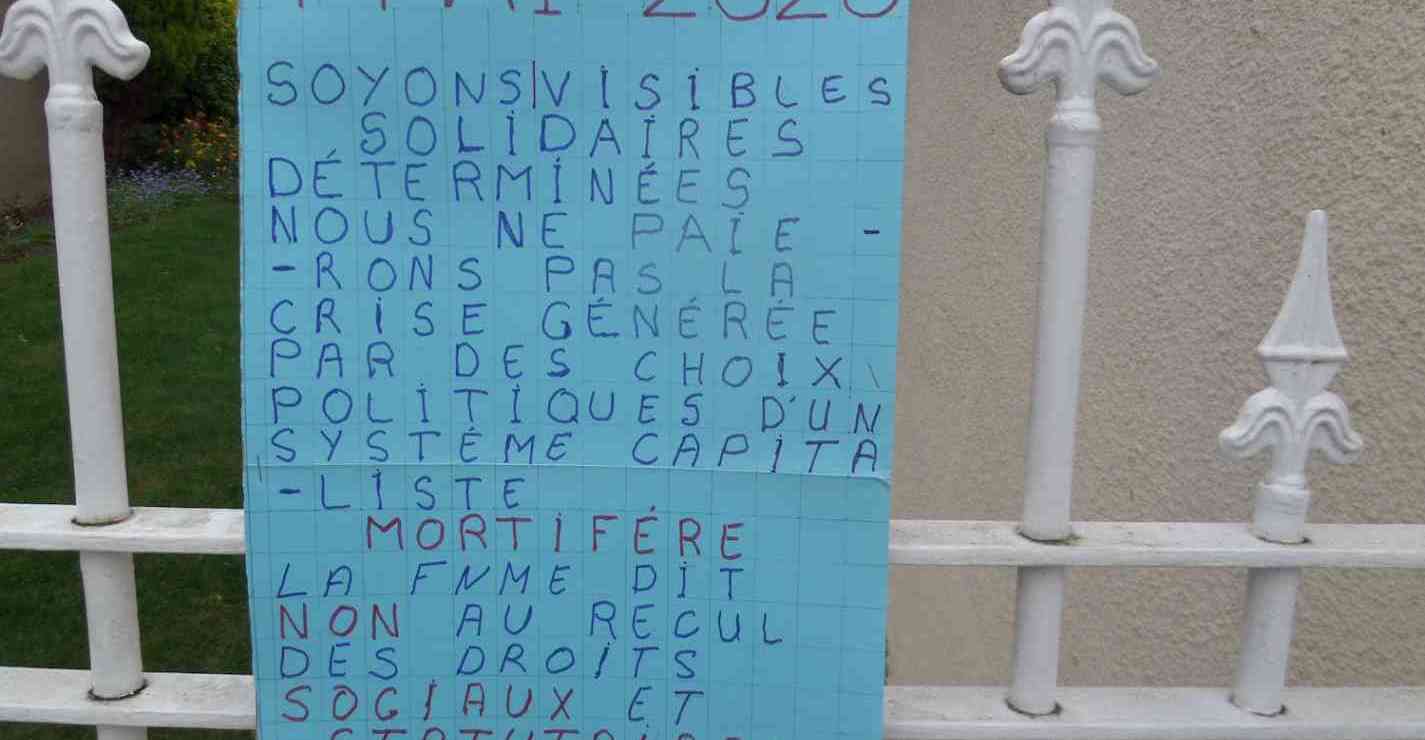 1 MAI 2020
SOYONS VISIBLES
SOLIDAIRES
DÉTERMINÉES
NOUS NE PAIE -
-RONS PAS LA
CRISE GÉNÉRÉE
PAR DES CHOIX
POLITIQUES D'UN
SYSTÉME CAPITA
-LISTE
MORTIFÉRE
LA FNME DIT
NON AU RECUL
DES DROITS
SOCIAUX ET